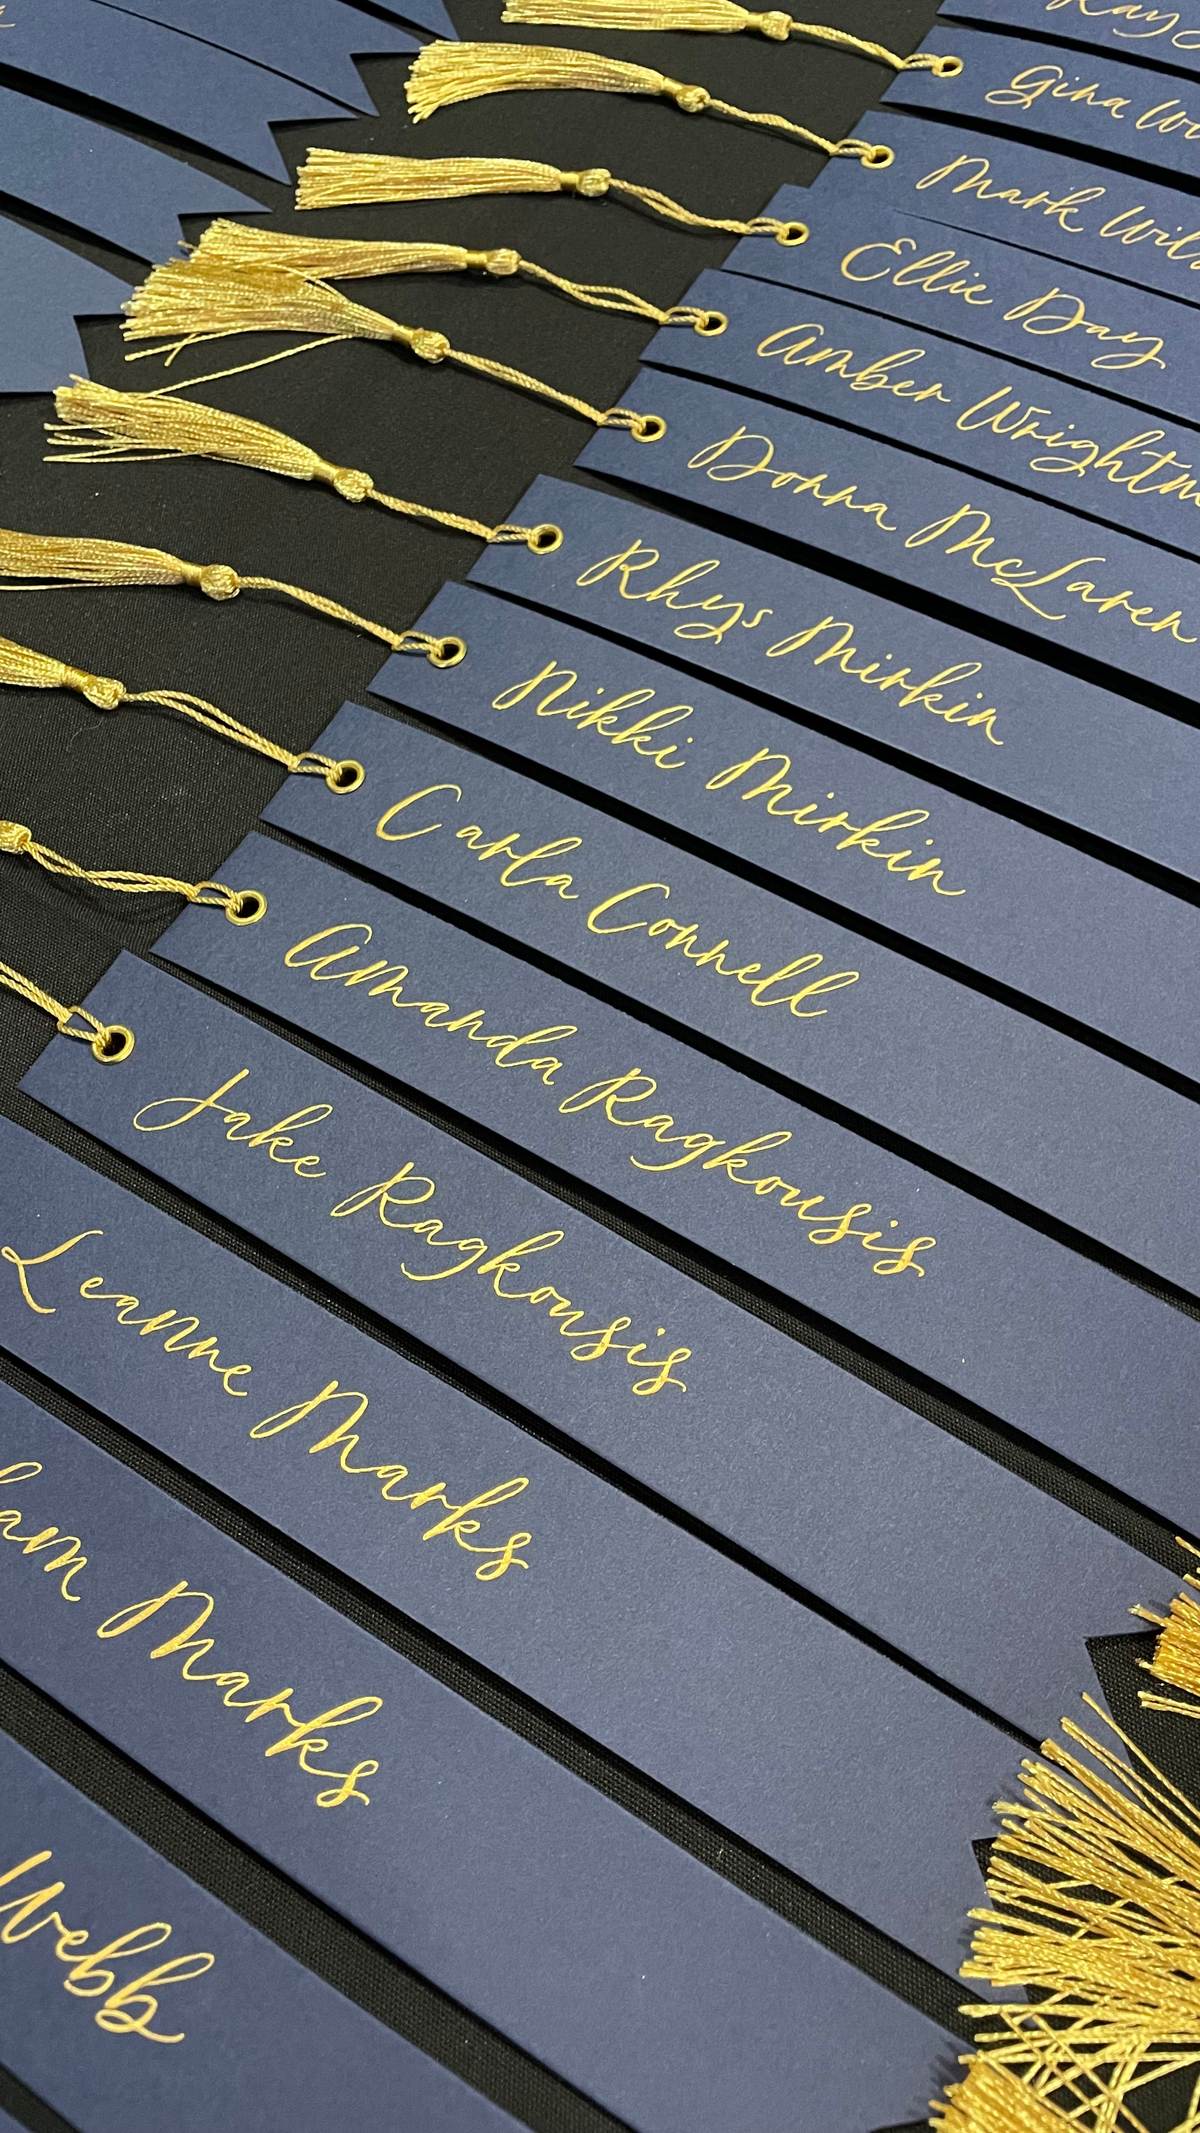 Gina
Mark
Ellie Day
Amber
Donna McLaren
Rhys Mirkin
Nikki Mirkin
Carla Connell
Amanda Ragkousis
Jake Ragkousis
Leanne Marks
Marks
Webb